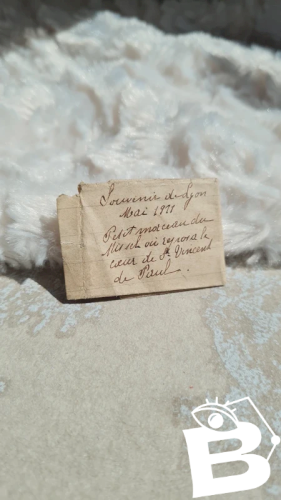 Souvenir de Lyon
Mai 1921
Petit morceau du
où reposa le
cœur de St Vincent
de Paul.
B